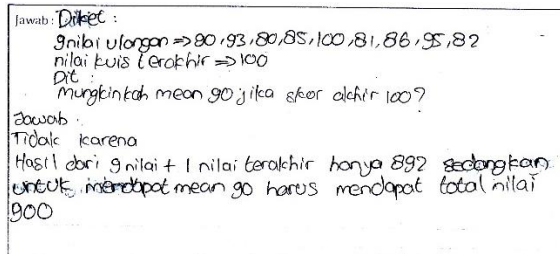 Jawab : Diket :
9 nilai ulangan => 90, 93, 80, 85, 100, 81, 86, 95, 82
nilai kuis terakhir => 100
Dit :
Mungkinkah mean 90 jika skor akhir 100?
Jawab .
Tidak karena
Hasil dari 9 nilai + 1 nilai terakhir hanya 892 sedangkan
untuk mendapat mean 90 harus mendapat total nilai
900